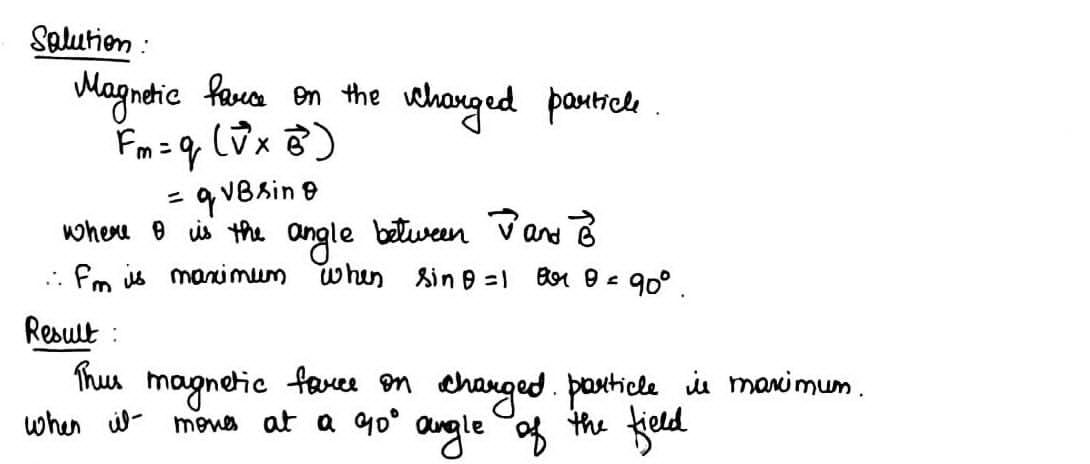 Solution :
Magnetic force on the charged particle.
Fm = q (V⃗ x B⃗)
= qVB sin θ
where θ is the angle between V⃗ and B⃗
∴ Fm is maximum when sin θ = 1 or θ = 90°.
Result :
Thus magnetic force on charged particle is maximum.
when it moves at a 90° angle of the field